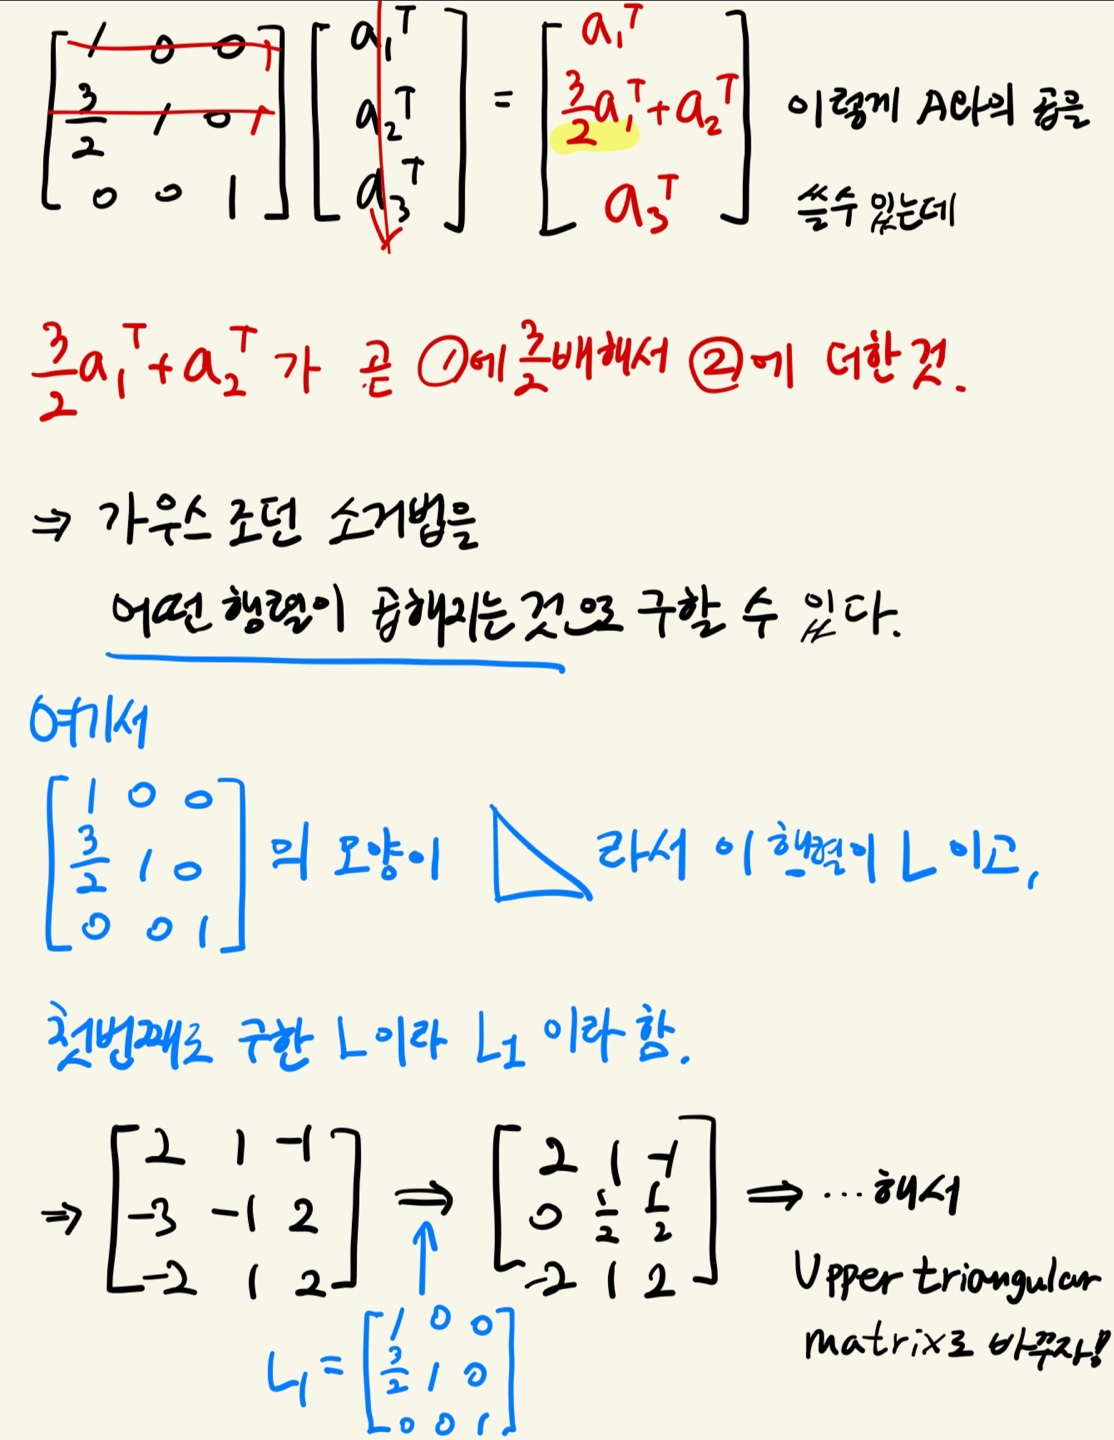 [1 0 0; 3/2 1 0; 0 0 1] [a₁ᵀ; a₂ᵀ; a₃ᵀ] = [a₁ᵀ; 3/2a₁ᵀ+a₂ᵀ; a₃ᵀ] 이렇게 A와의 곱을
쓸수 있는데
3/2a₁ᵀ+a₂ᵀ가 곧 ①에 3/2배해서 ②에 더한 것.
⇒ 가우스 조던 소거법을
어떤 행렬이 곱해지는 것으로 구할 수 있다.
여기서
[1 0 0; 3/2 1 0; 0 0 1] 의 모양이 라서 이 행렬이 L 이고,
첫번째로 구한 L이라 L₁ 이라 함.
⇒ [2 1 -1; -3 -1 2; -2 1 2] ⇒ [2 1 -1; 0 1/2 1/2; -2 1 2] ⇒ ...해서
Upper triangular
matrix로 바꾸자!
L₁ = [1 0 0; 3/2 1 0; 0 0 1]